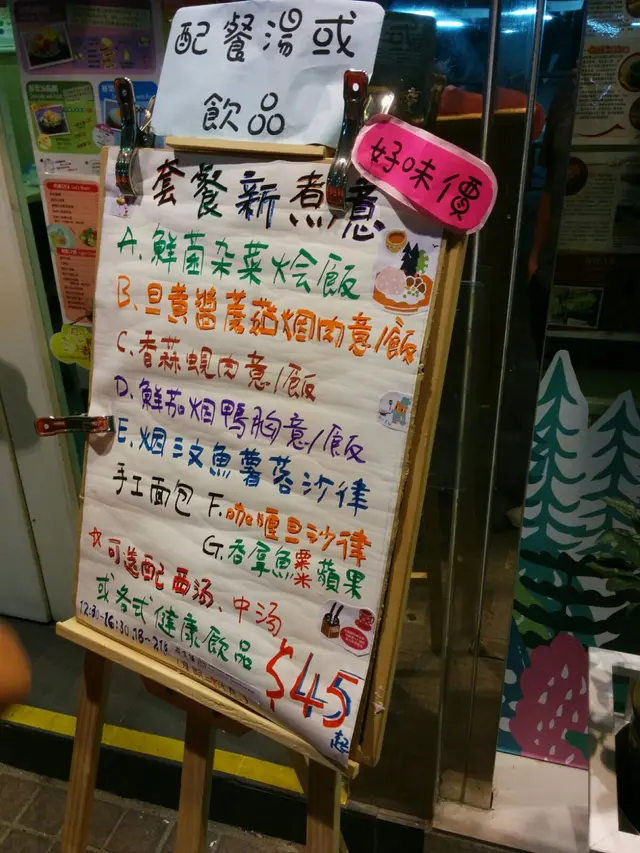 配餐湯或
飲品
好味價
套餐新煮意
A.鮮菌杂菜烩飯
B.旦黄醬蘑菇烟肉意/飯
C.香蒜蜆肉意/飯
D.鮮茄烟鴨胸意/飯
E.烟三文魚薯蓉沙律
手工面包 F.咖喱旦沙律
G.吞拿魚粟米蘋果
☆可選配西汤、中汤
或各式健康飲品
12:30-16:30 18-21:
$45
起